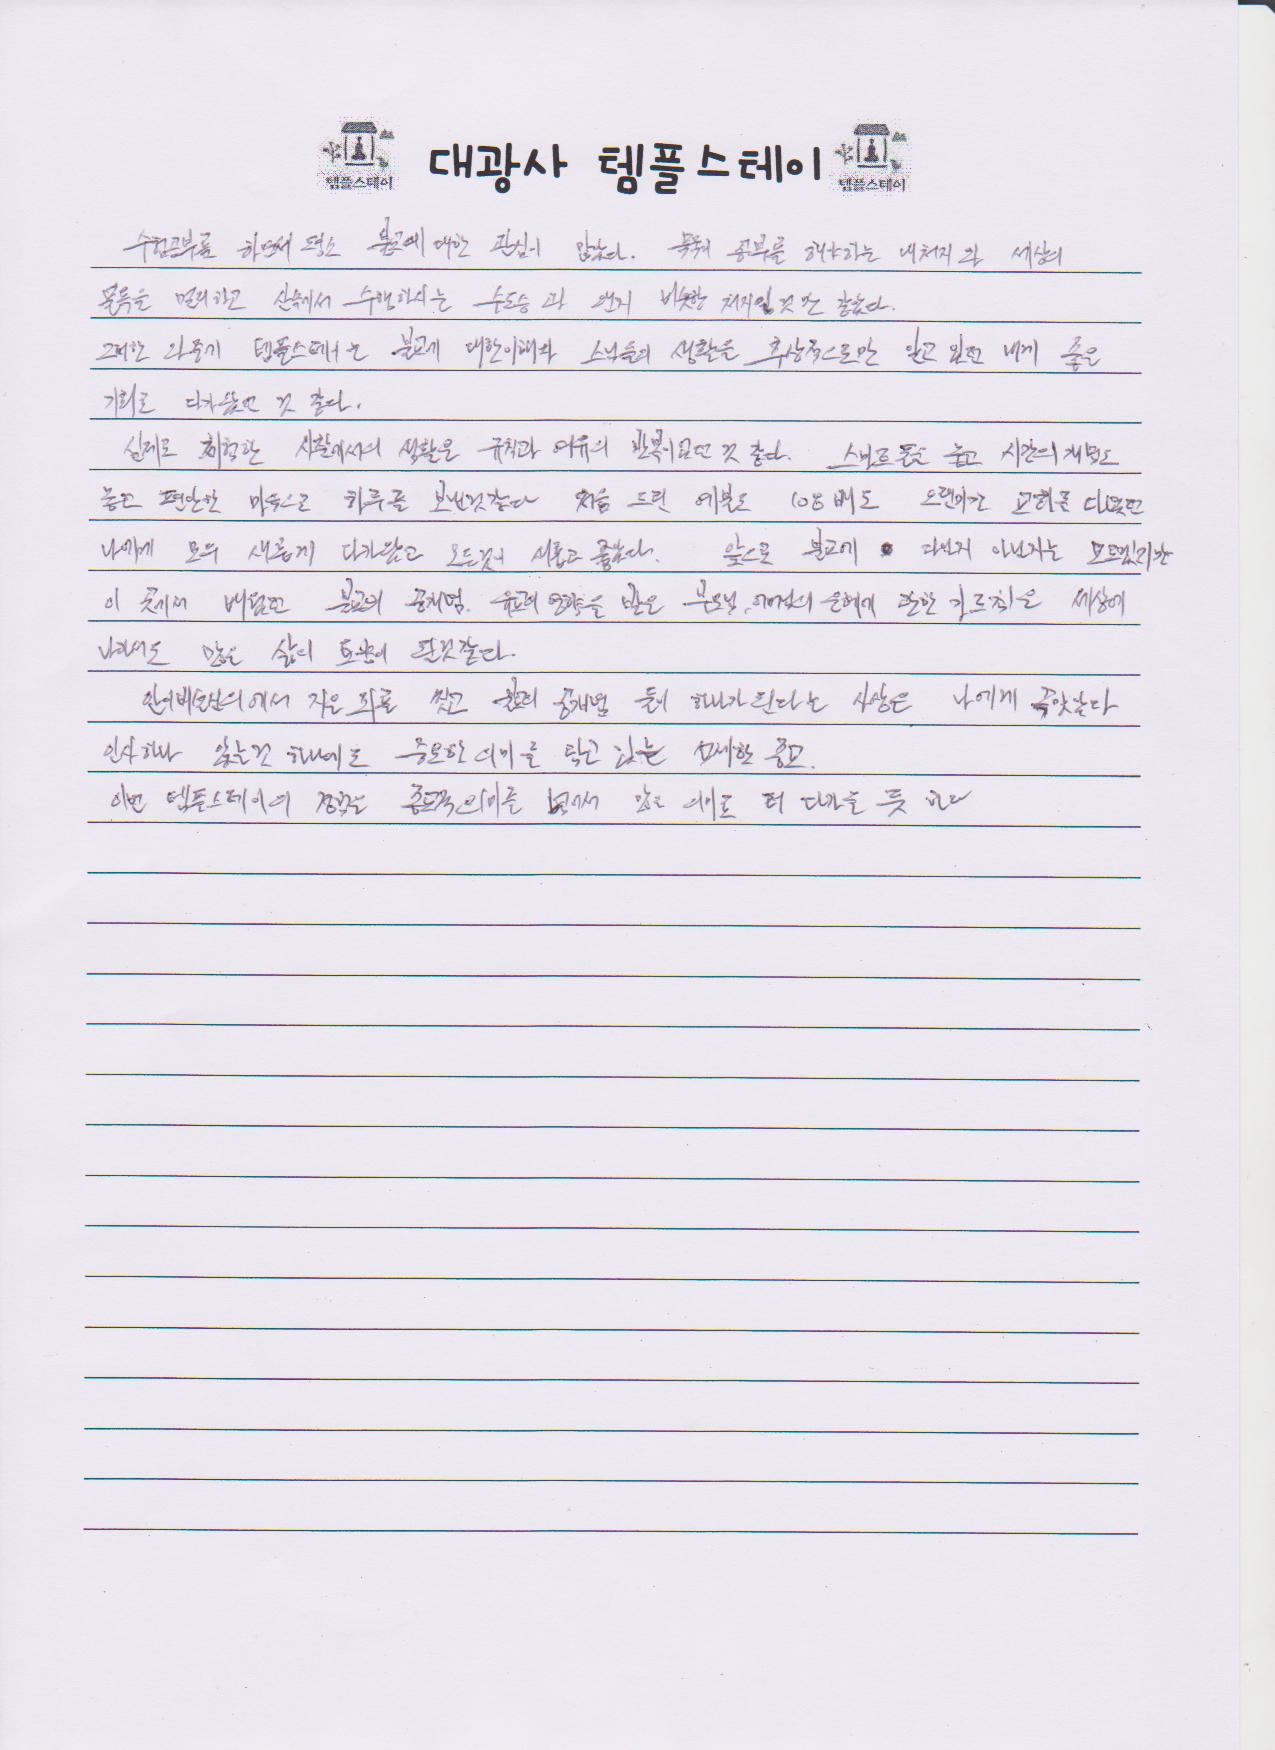 템플스테이 대광사 템플스테이 템플스테이
수험공부를 하면서 평소 불교에 대한 관심이 많았다. 묵묵히 공부를 해야하는 내 처지와 세상의
물욕을 멀리하고 산속에서 수행하시는 수도승과 왠지 비슷한 처지일것만 같았다.
그러한 와중에 템플스테이는 불교에 대한이해와 스님들의 생활을 추상적으로만 알고 있던 내게 좋은
기회로 다가왔던 것 같다.
실제로 체험한 사찰에서의 생활은 규칙과 여유의 반복이었던 것 같다. 스마트폰도 놓고 시간의 개념도
놓고 편안한 마음으로 하루를 보낸것같다 처음 드린 예불도 108배도 오랜기간 교회를 다녔던
나에게 모두 새롭게 다가왔고 모든것이 새롭고 좋았다. 앞으로 불교에 다닐지 아닐지는 모르겠지만
이 곳에서 배웠던 불교의 공개념, 유교의 영향을 받은 부모님, 어머님의 은혜에 관한 가르침은 세상에
나가서도 많은 삶의 도움이 될것같다.
에서 지은 죄를 씻고 공개념 둘이 하나가 된다는 사상은 나에게
인사하나 앉는것 하나에도 중요한 의미를 담고 있는 섬세한 종교.
이번 템플스테이의 경험은 종교적의미를 넘어서 많은 의미로 더 다가올 듯 하다